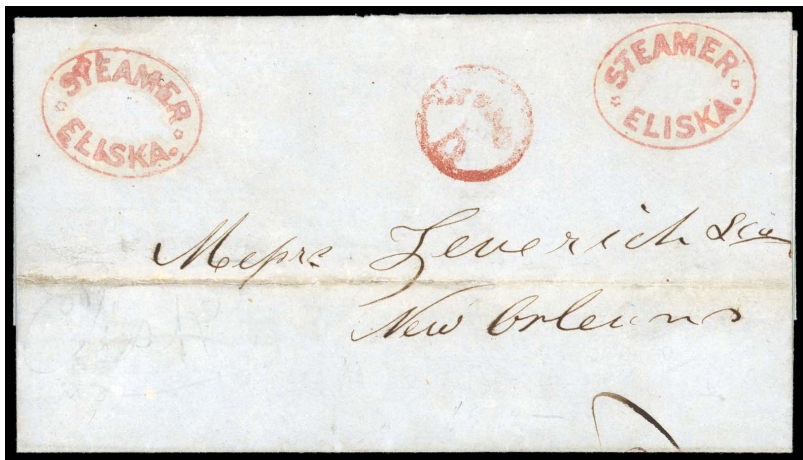 STEAMER
ELISKA.
STEAMER
ELISKA.
Messrs Leverich & Co
New Orleans